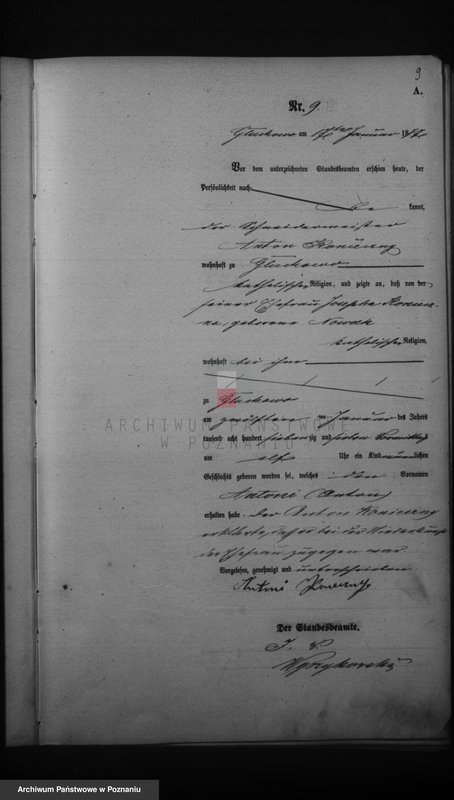 9
A.
Nr. 9.
Gluchowo am Januar 187
Vor dem unterzeichneten Standesbeamten erschien heute, der
Persönlichkeit nach
be kannt,
der Schneidermeister
Anton Konieczny
wohnhaft zu Gluchowo
katholischer Religion, und zeigte an, daß von der
seiner Ehefrau Josepha Koniecz-
na, geborene Nowak
katholischer Religion,
wohnhaft bei ihm
zu Gluchowo
ARCHIWUM PAŃSTWOWE
W POZNANIU
am Januar des Jahres
tausend acht hundert sieben zig und sieben Vormittags
um elf Uhr ein Kind männlichen
Geschlechts geboren worden sei, welches den Vornamen
Antoni (Anton)
erhalten habe. Der Anton Konieczny
erklärte, daß er bei der Niederkunft
der Ehefrau zugegen war.
Vorgelesen, genehmigt und unterschrieben
Antoni
Der Standesbeamte.
Archiwum Państwowe w Poznaniu